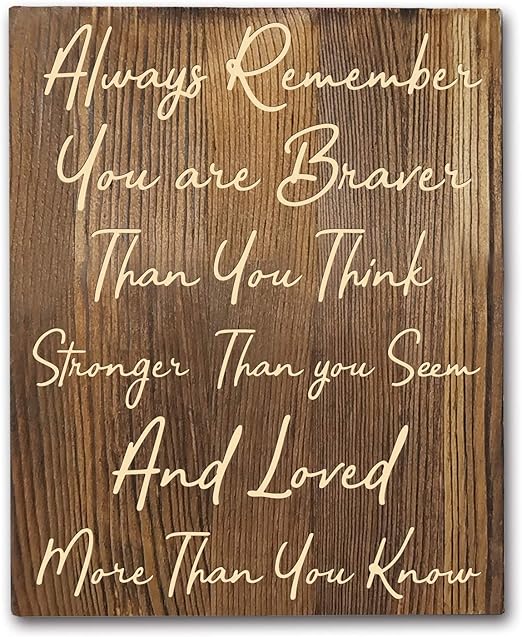 Always Remember
You are Braver
Than You Think
Stronger Than you Seem
And Loved
More Than You Know